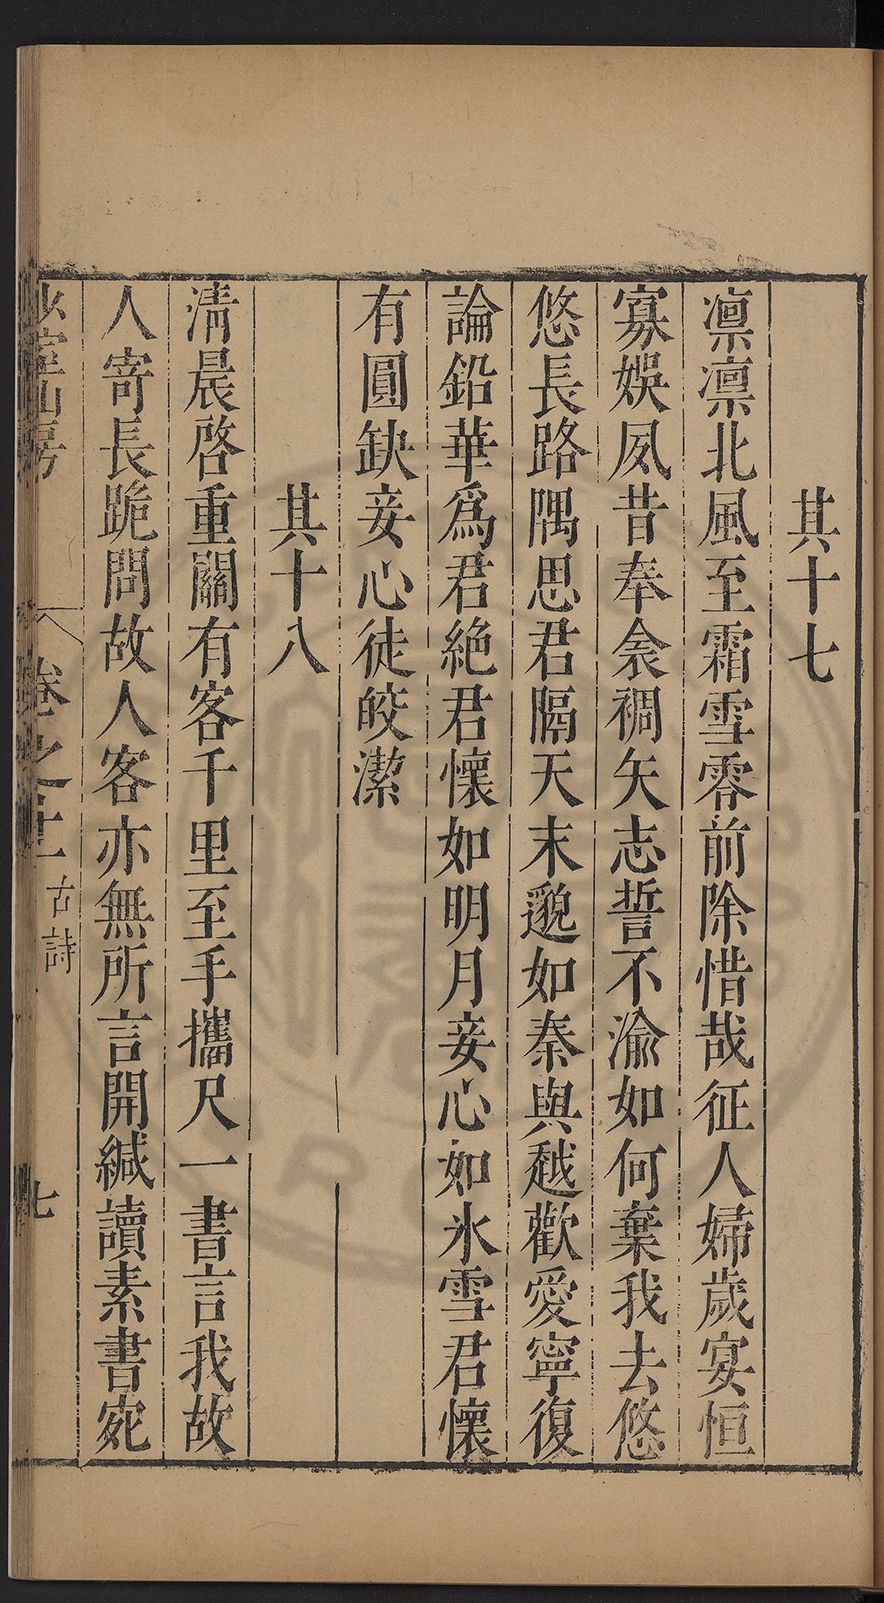 其十七
凛凛北風至霜雪零前除惜哉征人婦歲宴恒
寡娛夙昔奉衾裯矢志誓不渝如何棄我去悠
悠長路隅思君隔天末邈如秦與越歡愛寧復
論鉛華爲君絶君懷如明月妾心如氷雪君懷
有圓缺妾心徒皎潔
其十八
清晨啓重關有客千里至手攜尺一書言我故
人寄長跪問故人客亦無所言開緘讀素書宛
山房
卷之十一
古詩
七